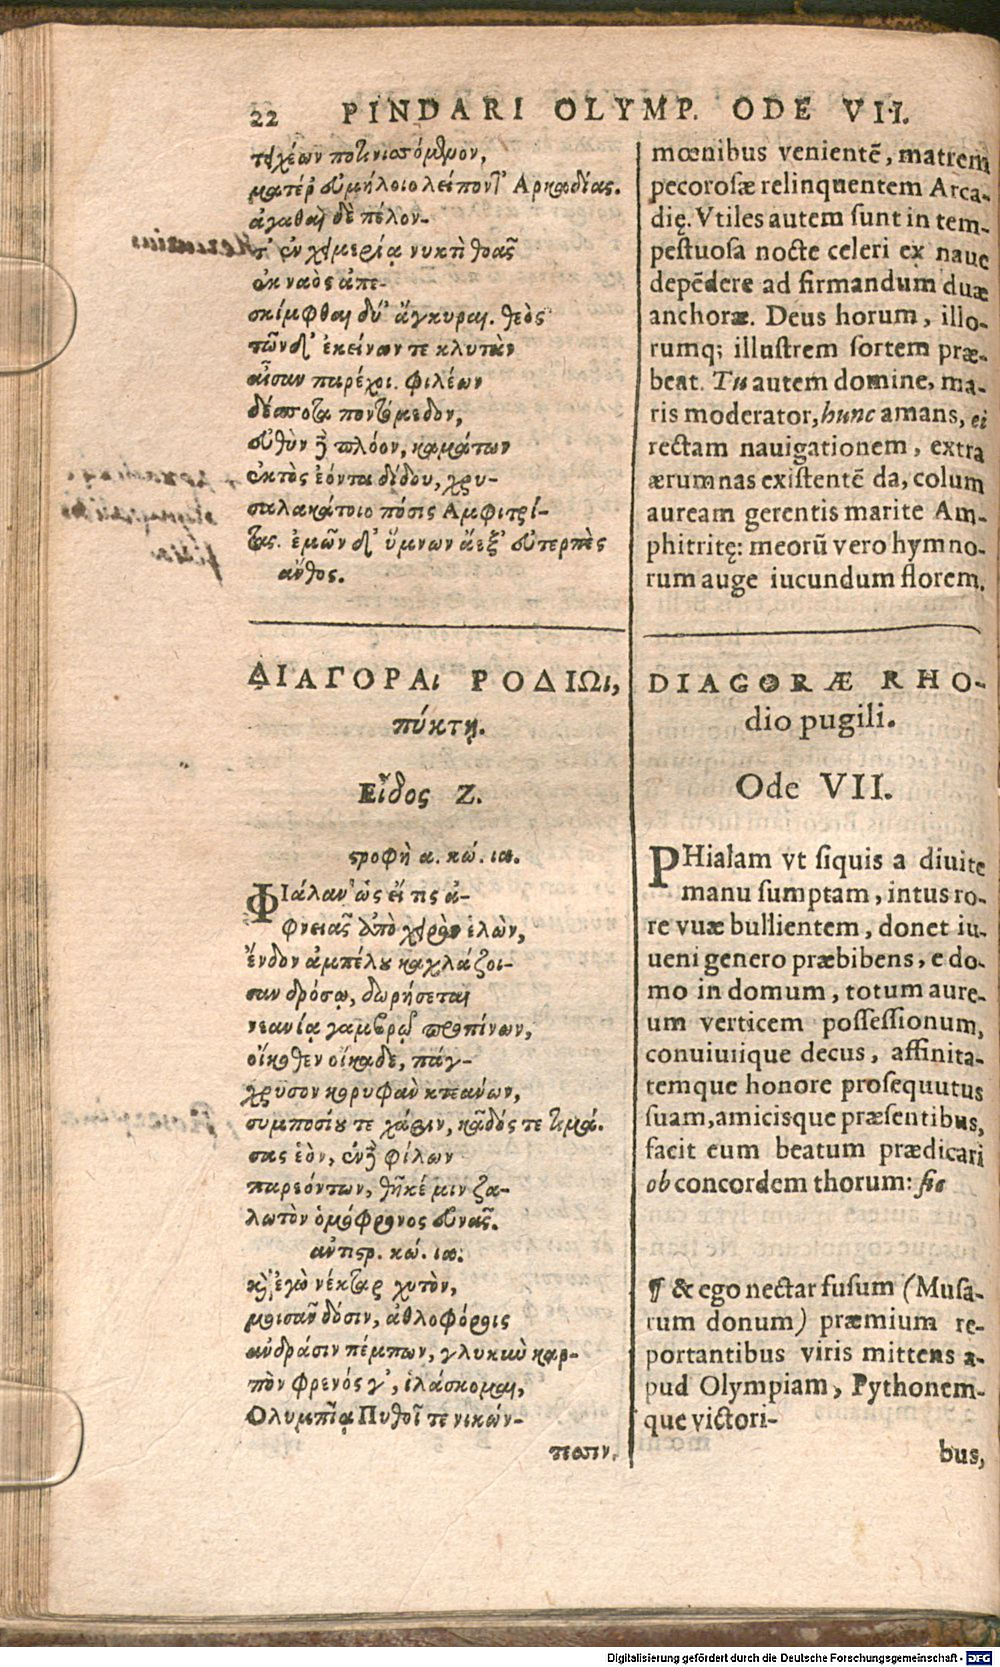 22 PINDARI OLYMP. ODE VII.
τειχέων ποτινισσόμενον,
ματέρ' εὐμήλοιο λείποντ' Αρκαδίας.
ἀγαθαὶ δὲ πέλον-
τ' ἐν χειμερίᾳ νυκτὶ θοᾶς
ἐκ ναὸς ἀπε-
σκίμφθαι δύ' ἄγκυραι. θεὸς
τῶνδ' ἐκείνων τε κλυτὰν
αἶσαν παρέχοι. φιλέων
δέσποτα ποντόμεδον,
εὐθὺν δὲ πλόον, καμάτων
ἐκτὸς ἐόντα δίδου, χρυ-
σαλακάτοιο πόσις Αμφιτρί-
τας. ἐμῶν δ' ὕμνων ἄεξ' εὐτερπὲς
ἄνθος.
ΔΙΑΓΟΡΑι ΡΟΔΙΩι,
πύκτῃ.
Εἶδος Ζ.
στροφὴ α. κώ. ια.
ΦΙάλαν ὡς εἴ τις ἀ-
φνειᾶς ἀπὸ χειρὸς ἑλὼν,
ἔνδον ἀμπέλου καχλάζοι-
σαν δρόσῳ, δωρήσεται
νεανίᾳ γαμβρῷ προπίνων,
οἴκοθεν οἴκαδε, πάγ-
χρυσον κορυφὰν κτεάνων,
συμποσίου τε χάριν, κᾶδός τε τιμά.
σας ἑὸν, ἐν δὲ φίλων
παρεόντων, θῆκέ μιν ζα-
λωτὸν ὁμόφρονος εὐνᾶς.
ἀντιστρ. κώ. ια.
καὶ ἐγὼ νέκταρ χυτὸν,
μοισᾶν δόσιν, ἀθλοφόροις
ἀνδράσιν πέμπων, γλυκὺν καρ-
πὸν φρενός γ', ἱλάσκομαι,
Ολυμπίᾳ Πυθοῖ τε νικών-
τεσσιν.
mœnibus venientē, matrem
pecorosæ relinquentem Arca-
dię. Vtiles autem sunt in tem-
pestuosa nocte celeri ex naue
depēdere ad firmandum duæ
anchoræ. Deus horum, illo-
rumq; illustrem sortem præ-
beat. Tu autem domine, ma-
ris moderator, hunc amans, ei
rectam nauigationem, extra
ærumnas existentē da, colum
auream gerentis marite Am-
phitritę: meorū vero hymno-
rum auge iucundum florem.
DIAGORÆ RHO-
dio pugili.
Ode VII.
PHialam vt siquis a diuite
manu sumptam, intus ro-
re vuæ bullientem, donet iu-
ueni genero præbibens, e do-
mo in domum, totum aure-
um verticem possessionum,
conuiuiique decus, affinita-
temque honore prosequutus
suam, amicisque præsentibus,
facit eum beatum prædicari
ob concordem thorum: sic
¶ & ego nectar fusum (Musa-
rum donum) præmium re-
portantibus viris mittens a-
pud Olympiam, Pythonem-
que victori-
bus,
Digitalisierung gefördert durch die Deutsche Forschungsgemeinschaft - DFG